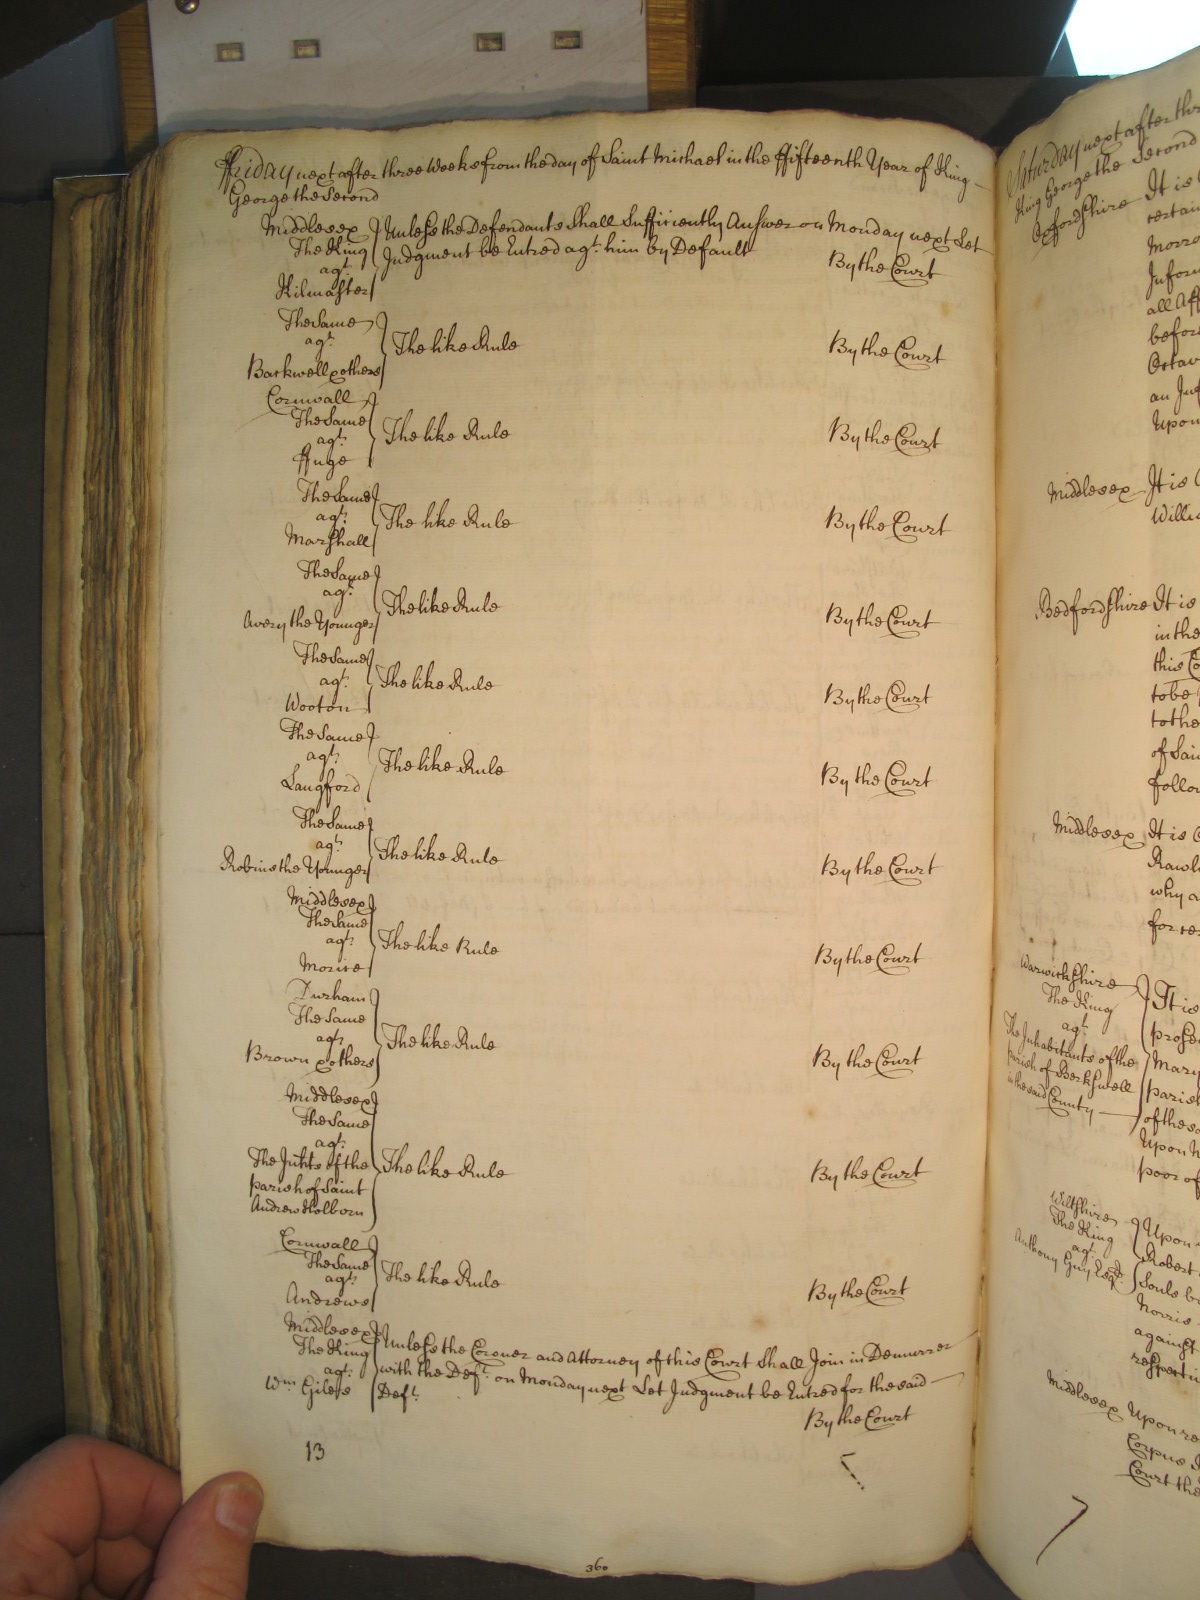 ffriday next after three Weeks from the day of Saint Michael in the ffifteenth Year of King
George the Second
Middlesex
The King
agt.
Kilmaster
Unless the Defendants Shall Sufficiently Answer on Monday next Let
Judgment be Entred agt. him by Default
By the Court
The Same
agt.
Barkwell & others
The like Rule
By the Court
Cornwall
The Same
agt.
ffuge
The like Rule
By the Court
The Same
agt.
Marshall
The like Rule
By the Court
The Same
agt.
Avery the Younger
The like Rule
By the Court
The Same
agt.
Wooton
The like Rule
By the Court
The Same
agt.
Langford
The like Rule
By the Court
The Same
agt.
Robins the Younger
The like Rule
By the Court
Middlesex
The Same
agt.
Morise
The like Rule
By the Court
Durham
The Same
agt.
Brown & others
The like Rule
By the Court
Middlesex
The Same
agt.
The Inhts of the
parish of Saint
Andrew Holborn
The like Rule
By the Court
Cornwall
The Same
agt.
Andrews
The like Rule
By the Court
Middlesex
The King
agt.
Wm. Gileps
Unless the Coroner and Attorney of this Court Shall Join in Demurrer
with the Deft. on Monday next Let Judgment be Entred for the said
Deft.
By the Court
13
360
Saturday next after thr
King George the Second
Oxfordshire It is
certain
Morro
Inform
all Aff
before
Octav
an Inf
Upon
Middlesex It is
Willia
Bedfordshire It is
in the
this Co
to be
to the
of Sai
follow
Middlesex It is
Rawl
why a
for re
Warwickshire
The King
agt.
The Inhabitants of the
parish of Berkswell
in the said County
It is
prose
Mary
paris
of the s
Upon
poor of
Wiltshire
The King
agt.
Anthony Guy Esqr.
Upon
Robert
Soule b
Norris
against
respecti
Middlesex Upon re
Corpus
Court the
7